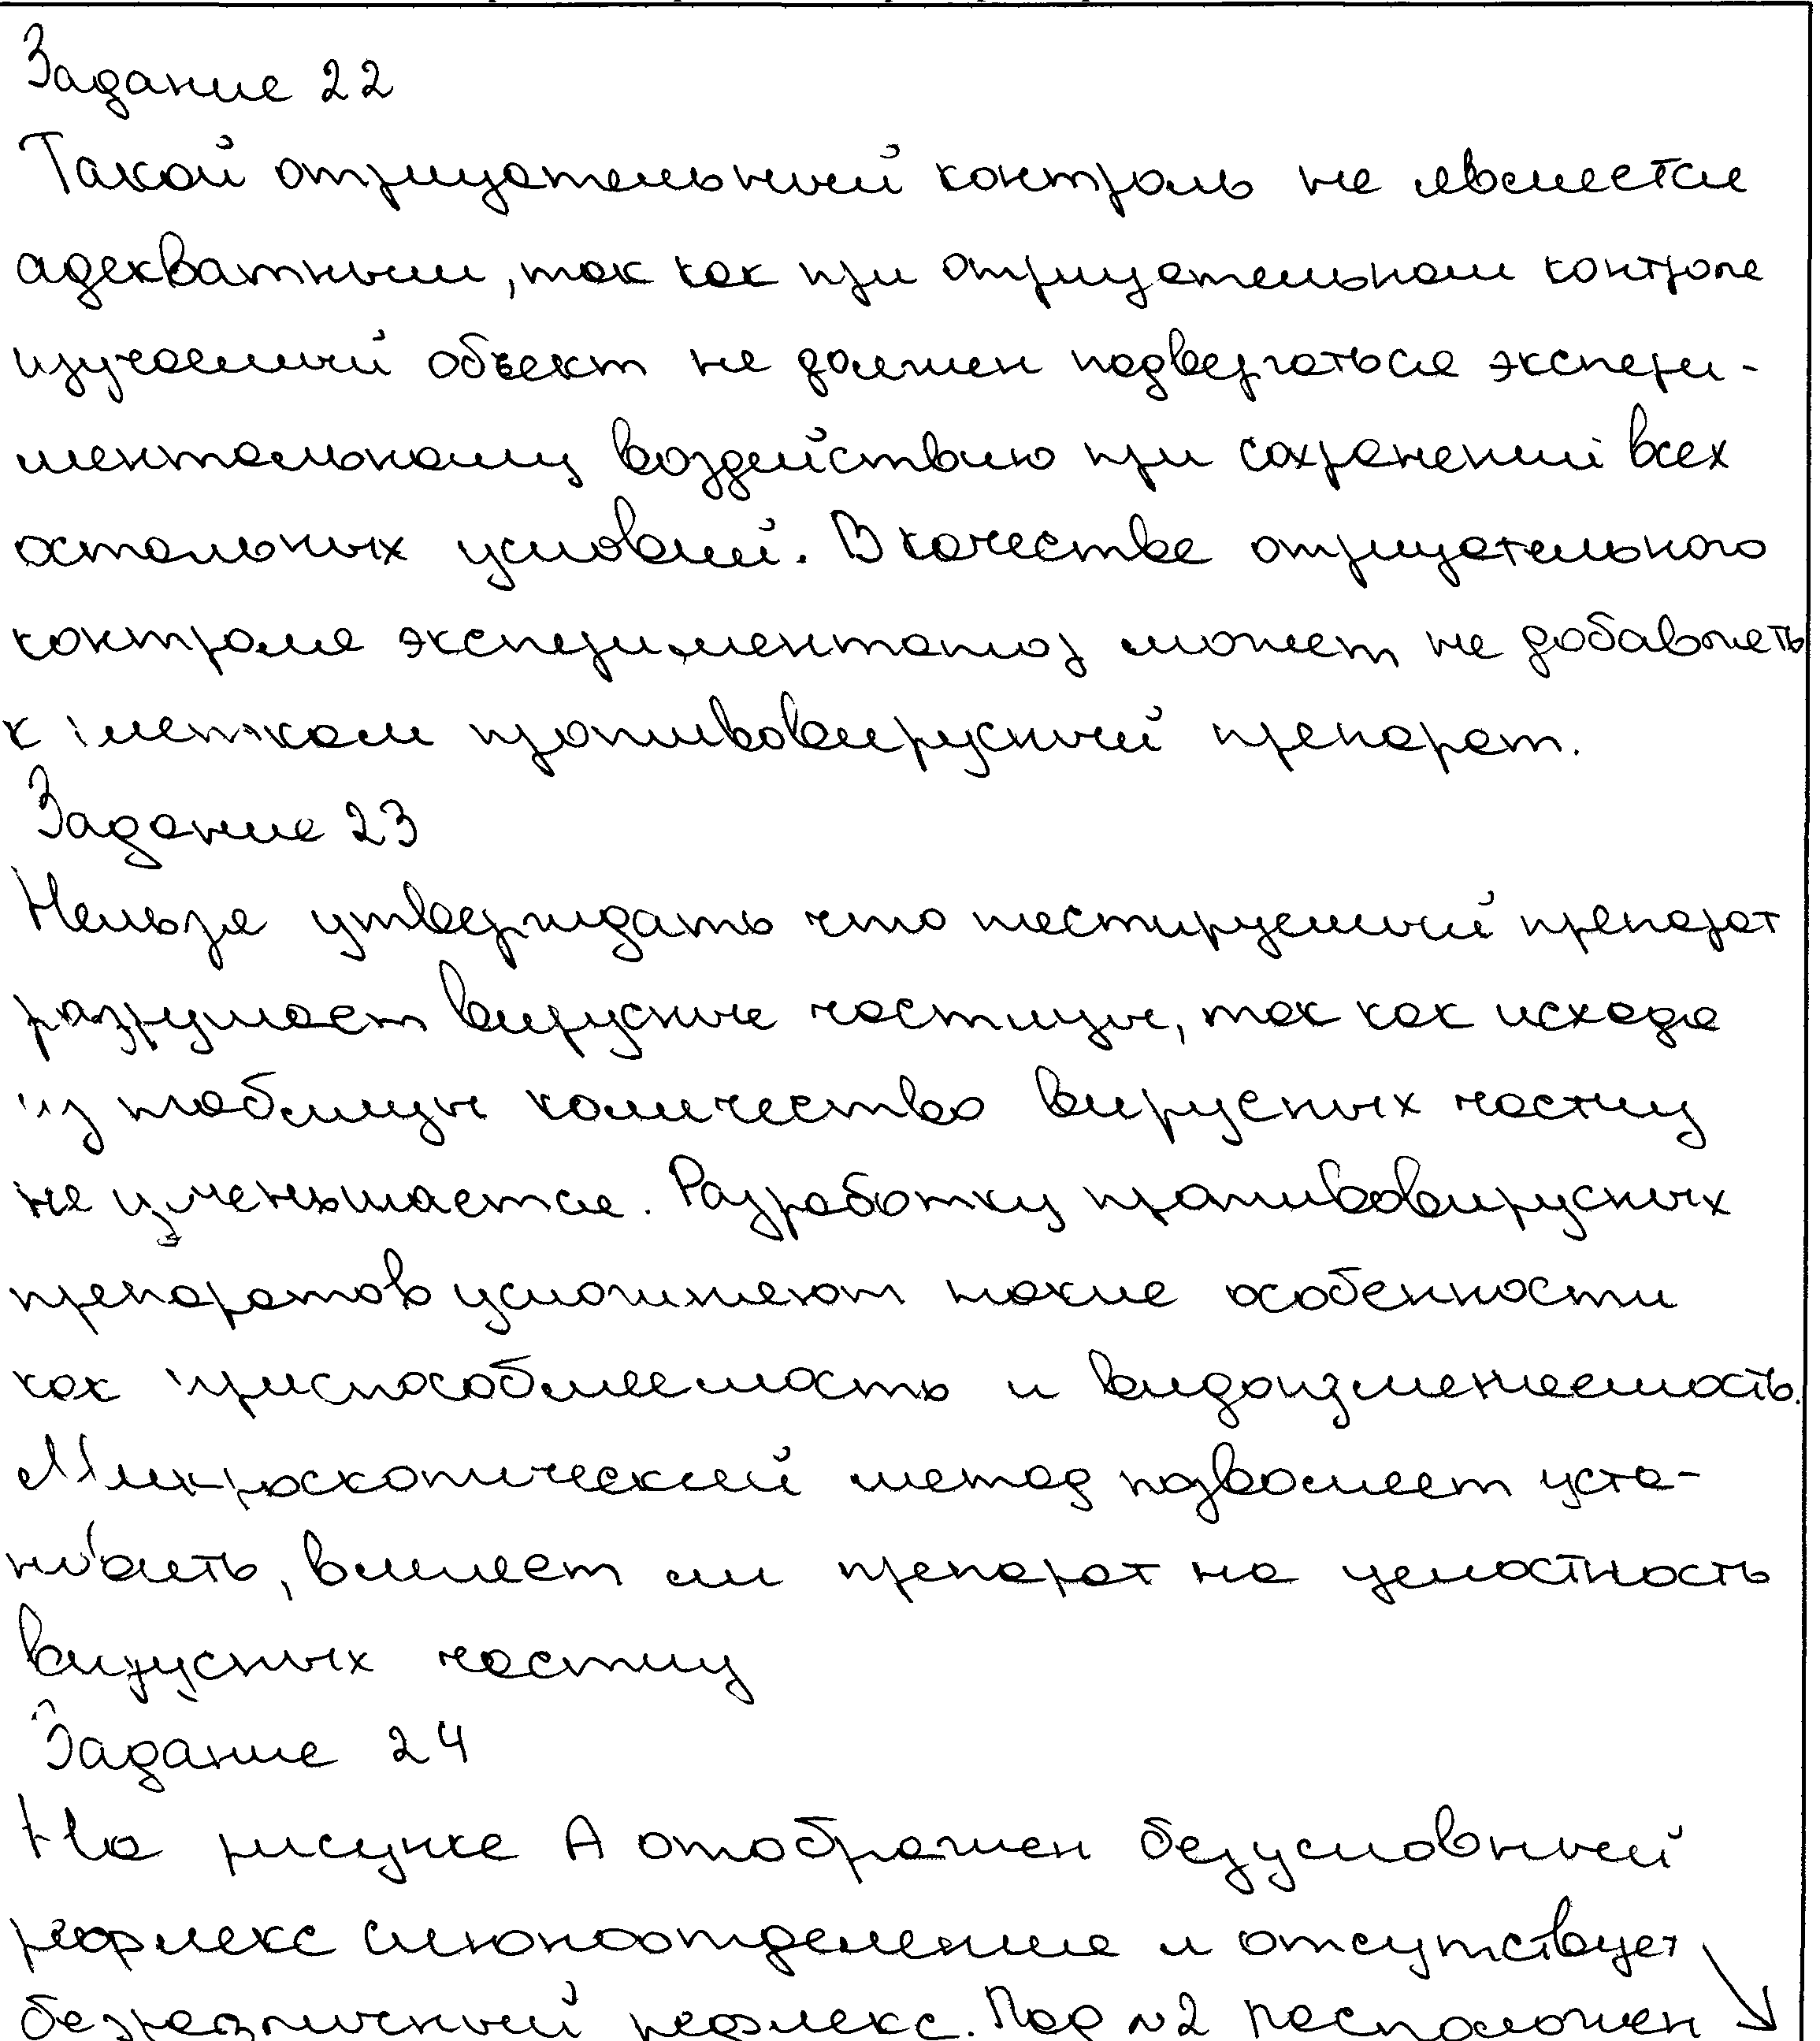 Задание 22
Такой отрицательный контроль не является
адекватным, так как при отрицательном контроле
изучаемый объект не должен подвергаться экспери-
ментальному воздействию при сохранении всех
остальных условий. В качестве отрицательного
контроля экспериментатор может не добавлять
к клеткам противовирусный препарат.
Задание 23
Нельзя утверждать что тестируемый препарат
разрушает вирусные частицы, так как исходя
из таблицы количество вирусных частиц
не уменьшается. Разработку противовирусных
препаратов усложняют такие особенности
как приспособляемость и видоизменяемость.
Микроскопический метод позволяет уста-
новить, влияет ли препарат на целостность
вирусных частиц
Задание 24
На рисунке А отображен безусловный
рефлекс слюноотделения и отсутствует
безразличный рефлекс. Под №2 расположен